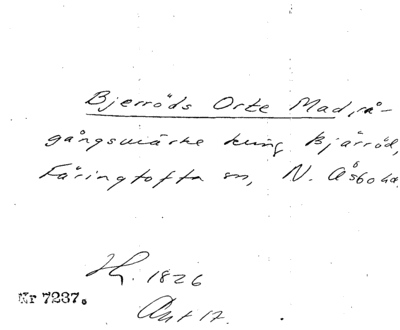 Bjerröds Orte Mad, rå-
gångsmärke kring Bjärröd,
Färingtofta sn, N. Åsbo hd.
Hg. 1826
Nr 7237.
Akt 17